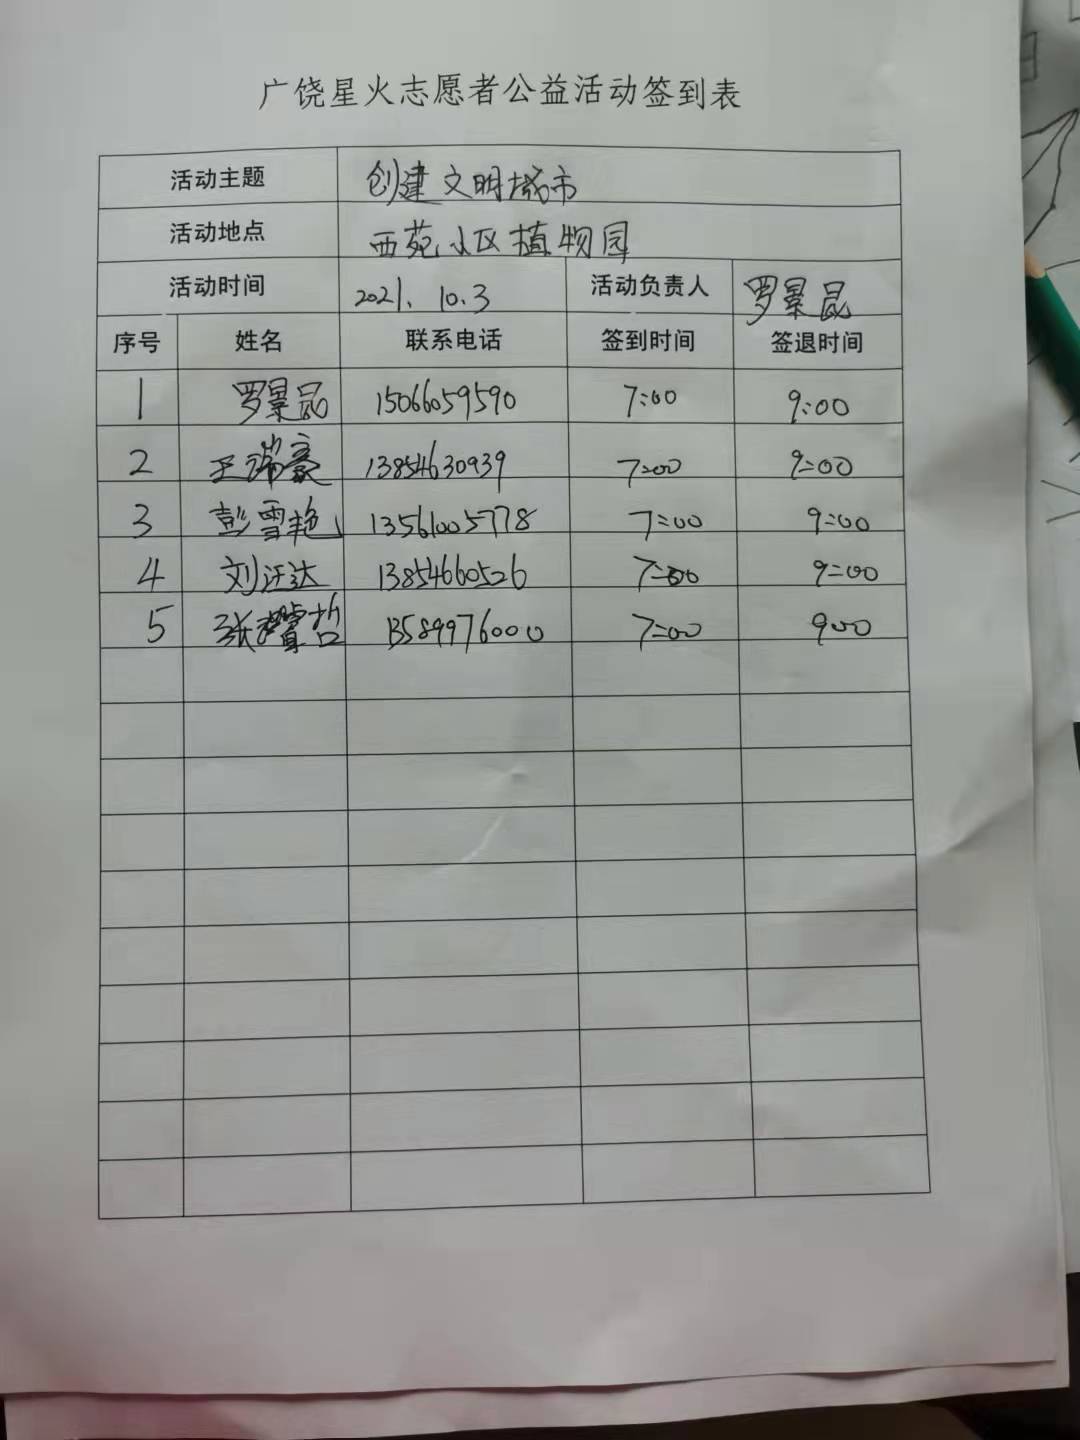 广饶星火志愿者公益活动签到表
活动主题 创建文明城市
活动地点 西苑小区植物园
活动时间 2021.10.3 活动负责人 罗景昆
序号 姓名 联系电话 签到时间 签退时间
1 罗景昆 15066059590 7:00 9:00
2 王瑞豪 13854630939 7:00 9:00
3 彭雪艳 13561005778 7:00 9:00
4 刘汪达 13854660526 7:00 9:00
5 张睿哲 13589976000 7:00 900